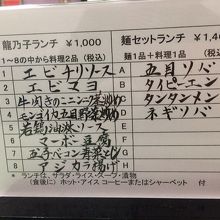 龍乃子ランチ ¥1,000
1~8の中から料理2品 (税込)
1 エビチリソース
2 エビマヨ
3 牛肉きのニンニク芽炒め
4 モンゴイカ五目野菜炒め
5 若鶏油淋ソース
6 マーボー豆腐
7 玉子ベーコン青菜と
8 シカラ揚げ
麺セットランチ ¥1,4
麺1品+料理1品 (税込)
A 五目ソバ
B タイピーエン
C タンタンメン
D ネギソバ
*ランチは、サラダ・ライス・スープ・漬物
(食後に) ホット・アイス コーヒーまたはシャーベット 付